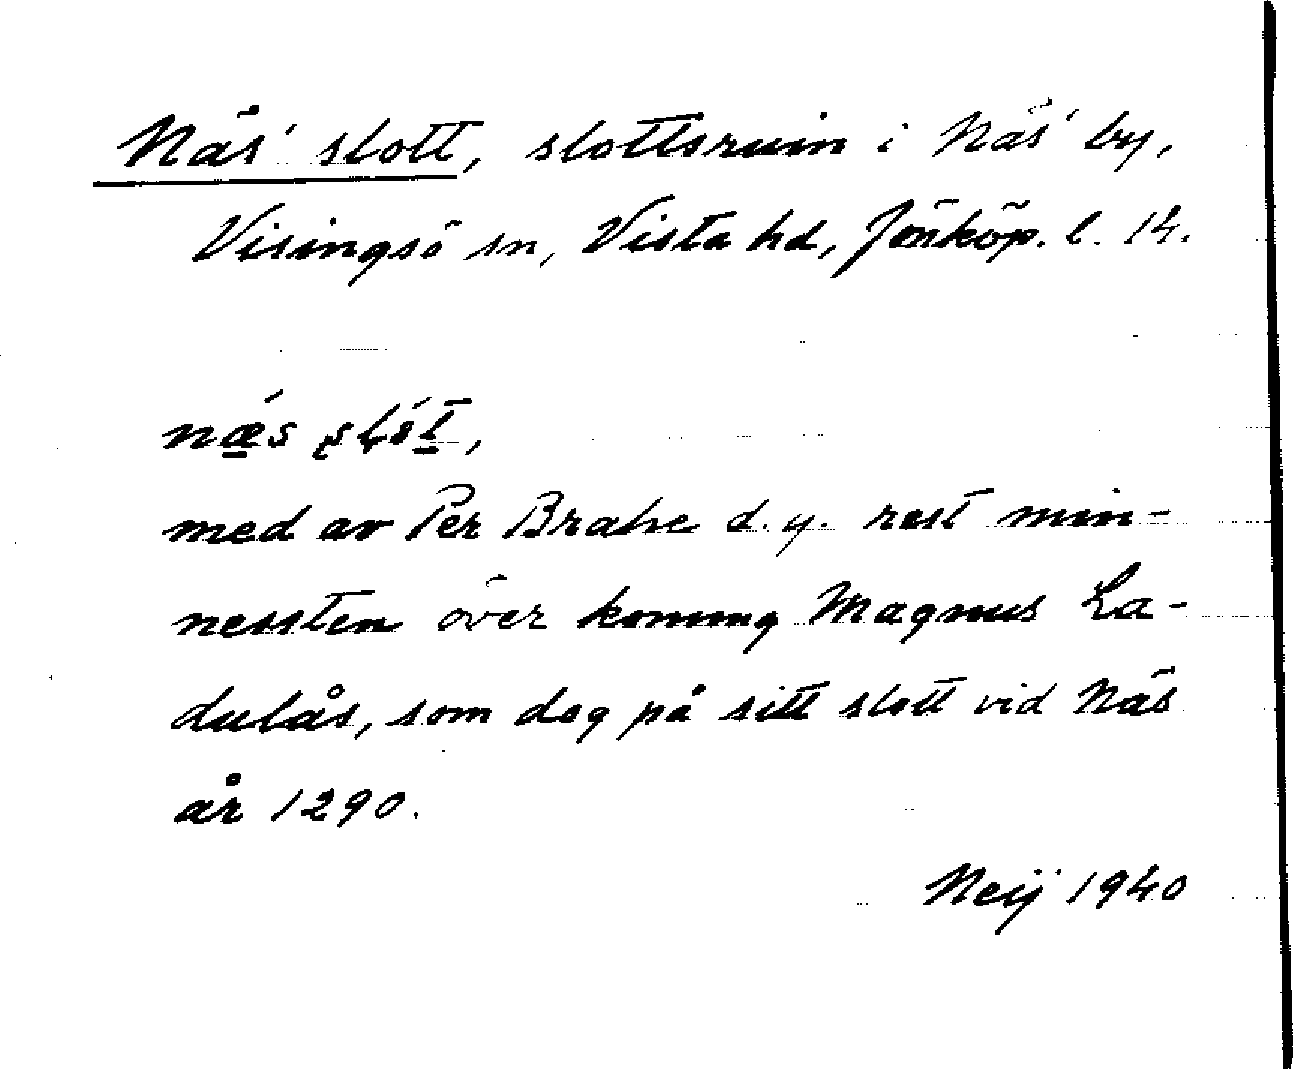 Näs' slott, slottsruin i Näs' by,
Visingsö sn, Vista hd, Jönköp. l. 14.
nǽ̱s slót̲,
med av Per Brahe d.y. rest min-
nessten över konung Magnus La-
dulås, som dog på sitt slott vid Näs
år 1290.
Neij 1940